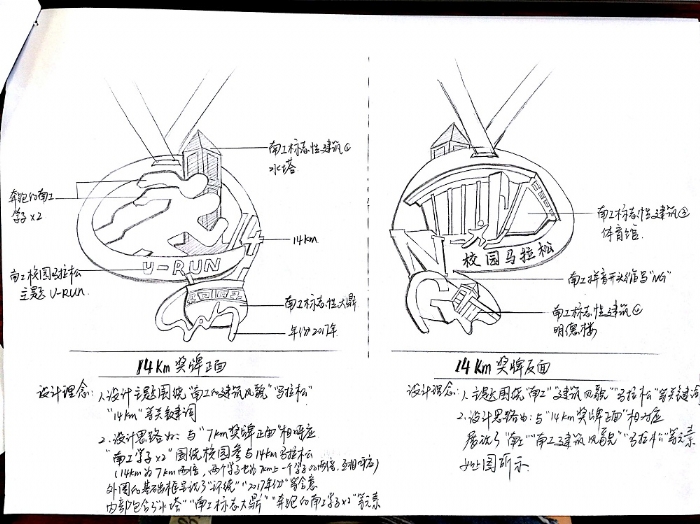 南工标志性建筑①
水塔
奔跑的南工
学子x2
14km
南工校园马拉松
主题 U-RUN.
U-RUN
南工标志性大鼎
年份2017年
14Km奖牌正面
设计理念: 1.设计主题围绕"南工的建筑风貌""马拉松"
"14km"等关键词
2.设计思路为: 与"7km奖牌正面"相呼应
"南工学子x2"围绕校园参与14km马拉松
(14km为7km两倍, 两个学子也为7km上一个学子的两倍,
"2017年份"等含意
内部包含"水塔""南工标志大鼎""奔跑的南工学子x2"等元素
南工标志性建筑②
体育馆.
校园马拉松
南工拼音开头缩写"NG"
南工标志性建筑
明德楼
14Km奖牌反面
设计理念: 1.主题围绕"南工""建筑风貌""马拉松"等关键词
2.设计思路为: 与"14km奖牌正面"相对应
展现了"南工""南工建筑风貌""马拉松"等元素
如图所示